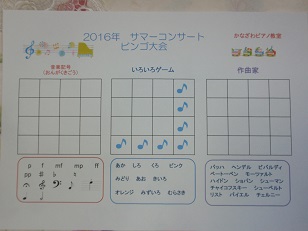 2016年 サマーコンサート
ビンゴ大会
かなざわピアノ教室
音楽記号
(おんがくきごう)
いろいろゲーム
作曲家
p f mf mp ff
pp # b
あか しろ くろ ピンク
みどり あお きいろ
オレンジ みずいろ むらさき
バッハ ヘンデル ビバルディ
ベートーベン モーツァルト
ハイドン ショパン シューマン
チャイコフスキー シューベルト
リスト バイエル チェルニー